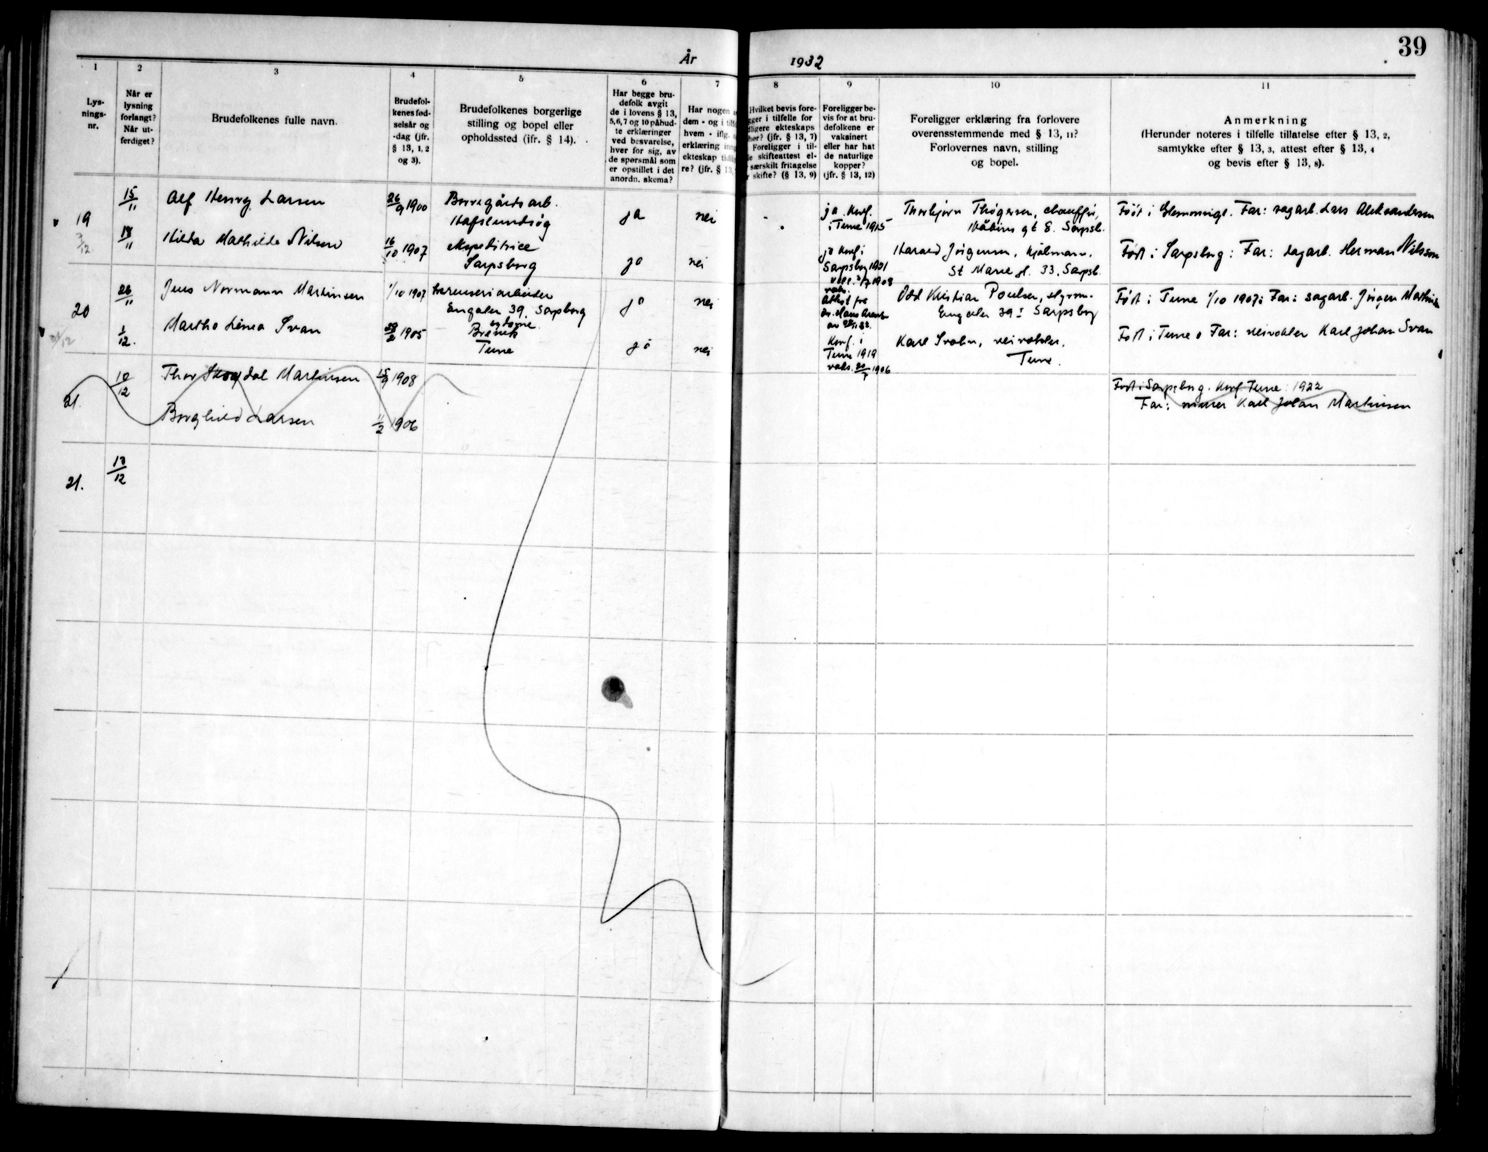 39
År 1932
1 2 3 4 5 6 7 8 9 10 11
Lys-
nings-
nr.
Når er
lysning
forlangt?
Når ut-
ferdiget?
Brudefolkenes fulle navn.
Brudefol-
kenes fød-
selsår og
-dag (jfr.
§ 13, 1, 2
og 3).
Brudefolkenes borgerlige
stilling og bopel eller
opholdssted (ifr. § 14).
Har begge bru-
defolk avgit
de i lovens § 13,
5,6,7 og 10 påbud-
te erklæringer
ved besvarelse,
hver for sig, av
de spørsmål som
er opstillet i det
anordn. skema?
Har nogen
dem - og i
hvem - iflg.
erklæring
ekteskap
re? (jfr. §
Hvilket bevis fore-
ligger i tilfelle for
ekteskaps
(jfr. § 13, 7)
Foreligger i til-
skifteattest el-
særskilt fritagelse
skifte? (§ 13, 9)
Foreligger be-
vis for at bru-
defolkene er
vaksinert
eller har hat
de naturlige
kopper?
(jfr. § 13, 12)
Foreligger erklæring fra forlovere
overensstemmende med § 13, 11?
Forlovernes navn, stilling
og bopel.
Anmerkning
(Herunder noteres i tilfelle tillatelse efter § 13, 2,
samtykke efter § 13, 3, attest efter § 13, 4
og bevis efter § 13, 8).
19
15/11 Alf Henry Larsen 26/9 1900 Borregårds arb.
Hafslundsøg
ja nei
ja. Konf.
i Tune 1915
Thorbjørn Thøgersen, chauffør,
Håkons gt 8. Sarpsb.
Født i Glemminge. Far: sagarb. Lars Aleksandersen
18/11 Hilda Mathilde Nilsen 16/10 1907 ekspeditrice
Sarpsborg
ja nei
ja Konf. i
Sarpsborg 1921
Harald Jörgensen, hjälmann.
St Marie gt. 33. Sarpsb.
Født i Sarpsborg: Far: sagarb. Herman Nilsen
20
26/11 Jens Normann Martinsen 1/10 1907
Enggaten 39, Sarpsborg
ja nei
Attest fra
Odd Kristian Poulsen, styrm.
Enggaten 39 I Sarpsborg
Født i Tune 1/10 1907: Far: sagarb. Jörgen Martinsen
1/12. Martha Linea Svan 1905
Tune
ja nei
Konf. i
Tune 1919
vaks. 1906
Karl Svahn, veivokter.
Tune.
Født i Tune Far: veivokter Karl Johan Svan
21.
10/12 Thor Skogdal Martinsen 1908
Født i Sarpsborg. Konf Tune 1922
Far: murer Karl Johan Martinsen
Borghild Larsen 11/2 1906
21.
12